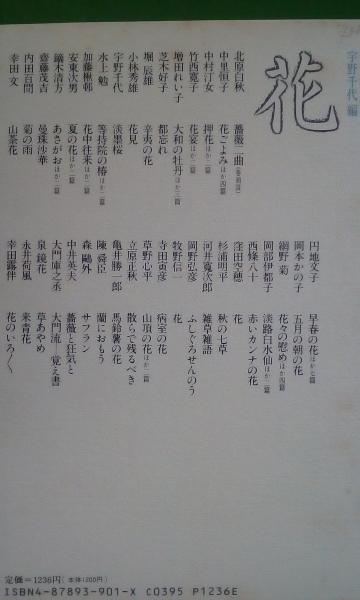 宇野千代 編
花
北原白秋 薔薇二曲(巻頭詩)
中里恒子 花ごよみ ほか四篇
中村汀女 押花 ほか二篇
竹西寛子 花宴 ほか二篇
増田れい子 大和の牡丹 ほか三篇
芝木好子 都忘れ
堀 辰雄 辛夷の花
小林秀雄 花見
宇野千代 淡墨桜
水上 勉 等持院の椿 ほか二篇
加藤楸邨 花中往来 ほか二篇
安東次男 夏の花 ほか二篇
鏑木清方 あさがお ほか二篇
斎藤茂吉 曼珠沙華
内田百閒 菊の雨
幸田 文 山茶花
円地文子 早春の花 ほか七篇
岡本かの子 五月の朝の花
網野 菊 花々の慰め ほか四篇
岡部伊都子 淡路白水仙 ほか二篇
西條八十 赤いカンナの花
窪田空穂 花
杉浦明平 秋の七草
河井寛次郎 雑草雑語
岡野弘彦 ふしぐろせんのう
牧野信一 花
寺田寅彦 病室の花
草野心平 山頂の花 ほか二篇
立原正秋 散らで残るべき
亀井勝一郎 馬鈴薯の花
陳 舜臣 蘭におもう
森 鷗外 サフラン
中井英夫 薔薇と狂気と
大門庫之丞 大門流―覚え書
泉 鏡花 草あやめ
永井荷風 来青花
幸田露伴 花のいろ〱
定価=1236円(本体1200円)
ISBN4-87893-901-X C0395 P1236E